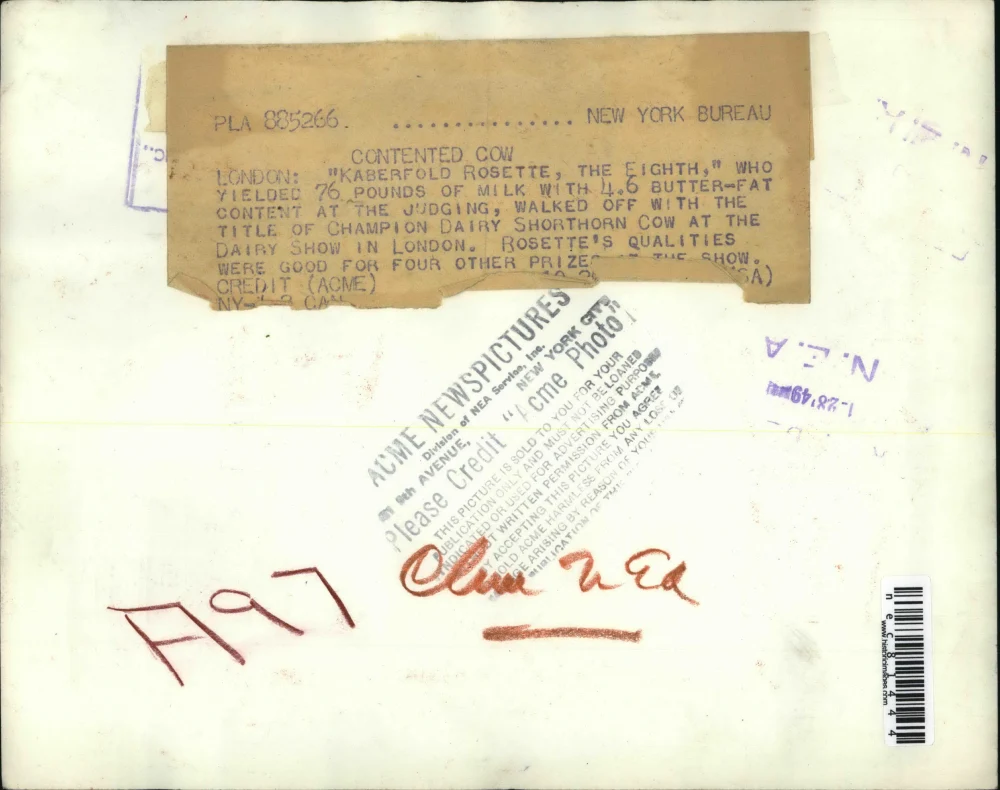 PLA 885266. ............... NEW YORK BUREAU
CONTENTED COW
LONDON: "KABERFOLD ROSETTE, THE EIGHTH," WHO
YIELDED 76 POUNDS OF MILK WITH 4.6 BUTTER-FAT
CONTENT AT THE JUDGING, WALKED OFF WITH THE
TITLE OF CHAMPION DAIRY SHORTHORN COW AT THE
DAIRY SHOW IN LONDON. ROSETTE'S QUALITIES
WERE GOOD FOR FOUR OTHER PRIZES AT THE SHOW.
CREDIT (ACME)
ACME NEWSPICTURES
Division of NEA Service, Inc.
AVENUE, NEW YORK CITY
Please Credit "Acme Photo"
THIS PICTURE IS SOLD TO YOU FOR YOUR
PUBLICATION ONLY AND MUST NOT BE LOANED
INDICATED OR USED FOR ADVERTISING PURPOSES
WRITTEN PERMISSION FROM ACME.
BY ACCEPTING THIS PICTURE YOU AGREE
HOLD ACME HARMLESS FROM ANY LOSS OR
ARISING BY REASON OF YOUR
N.E.A
A97
nec81444
www.historicimages.com